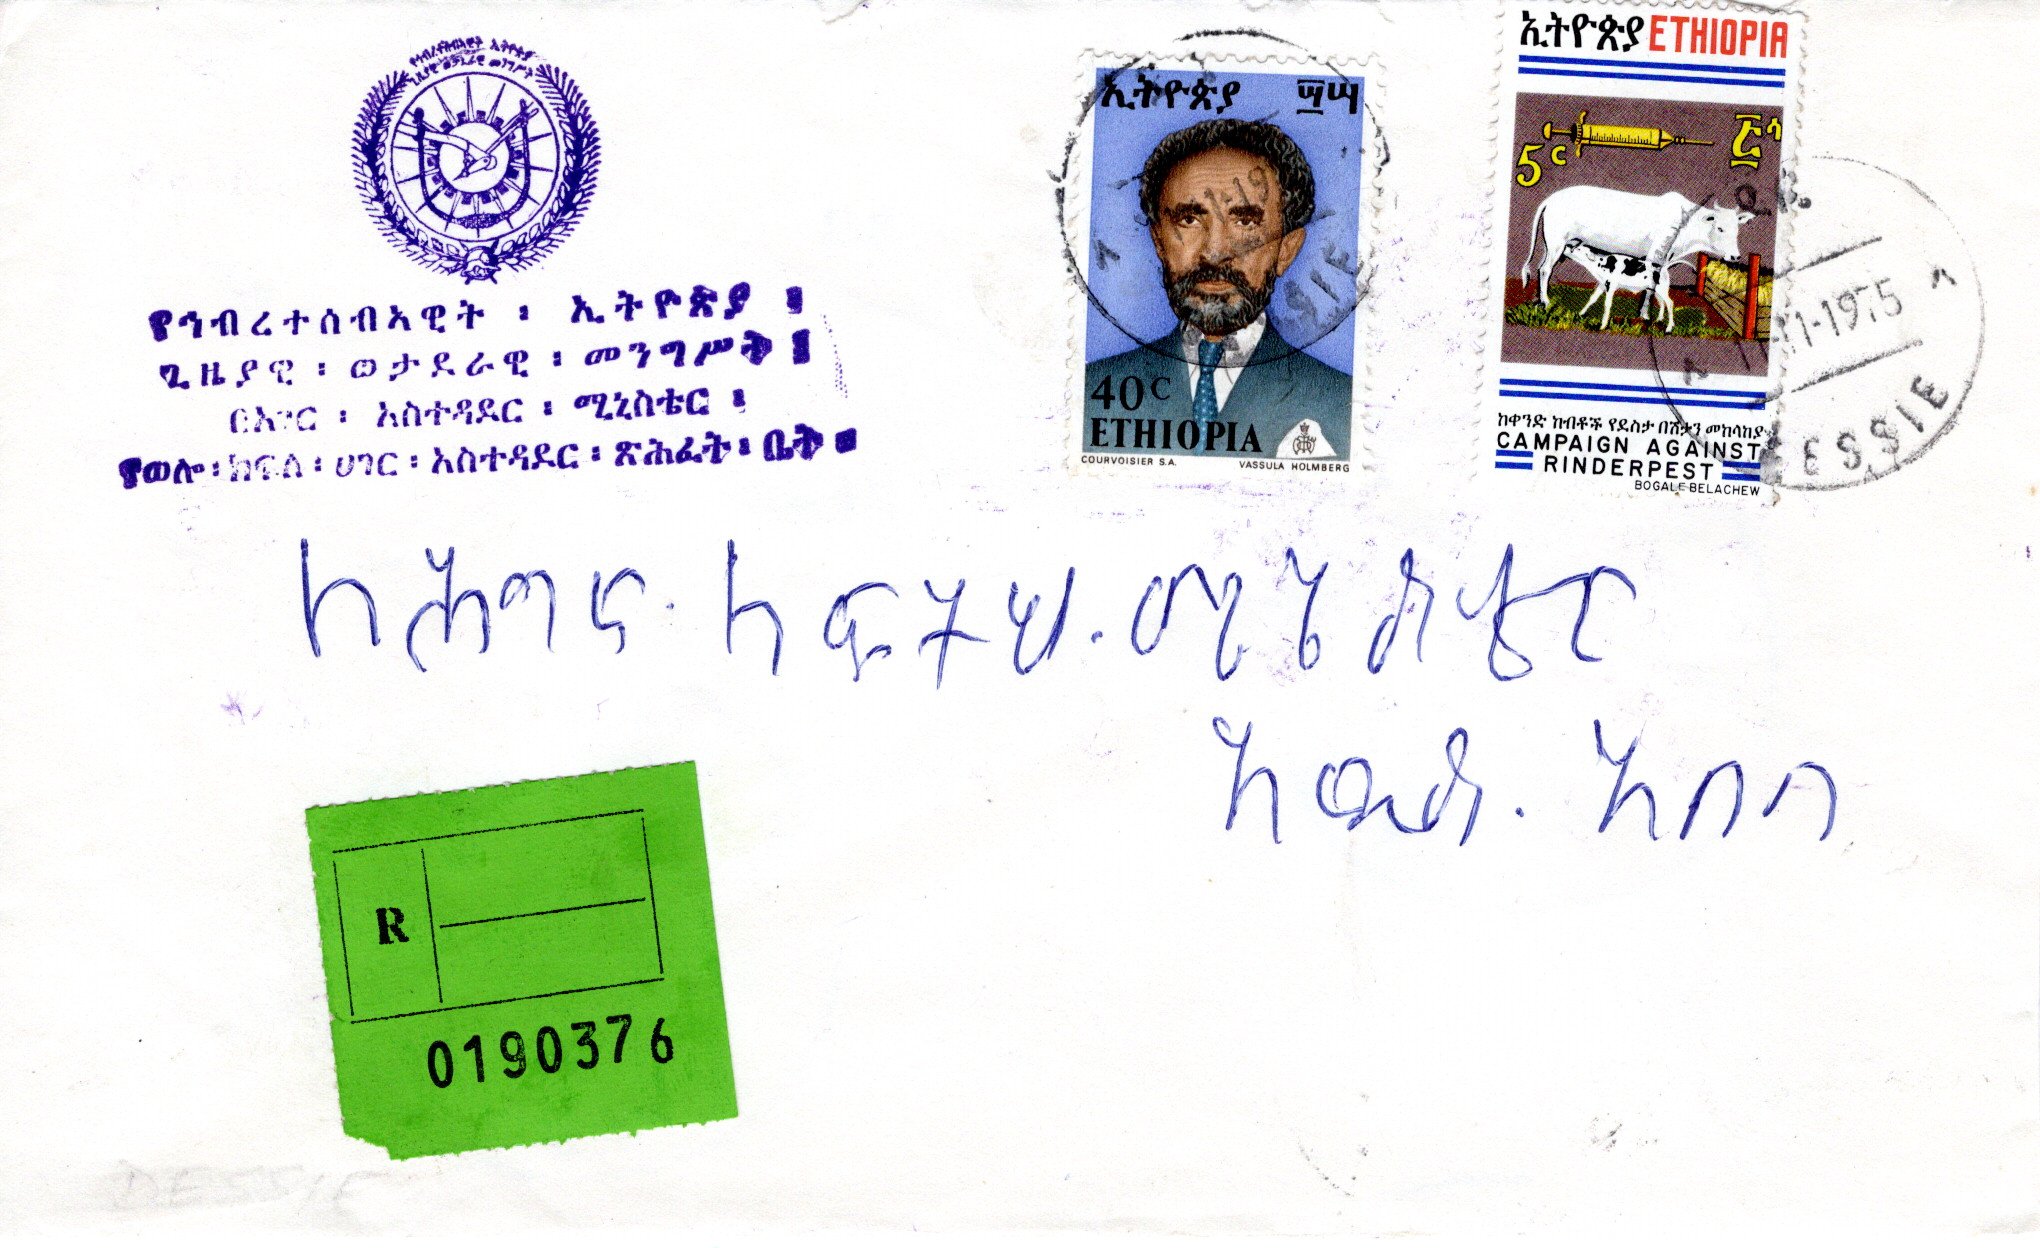 የኅብረተሰብኣዊት ኢትዮጵያ
ጊዜያዊ ወታደራዊ መንግሥት
የኅብረተሰብኣዊት ፡ ኢትዮጵያ ፡
ጊዜያዊ ፡ ወታደራዊ ፡ መንግሥት ፡
በአገር ፡ አስተዳደር ፡ ሚኒስቴር ፡
የወሎ ፡ ክፍለ ፡ ሀገር ፡ አስተዳደር ፡ ጽሕፈት ፡ ቤት ።
ኢትዮጵያ ፵ሣ
40C
ETHIOPIA
COURVOISIER S.A. VASSULA HOLMBERG
ኢትዮጵያ ETHIOPIA
5c
ከቀንድ ከብቶች የደስታ በሽታን መከላከያ
CAMPAIGN AGAINST
RINDERPEST
BOGALE BELACHEW
11-1975
DESSIE
ለሕግና ለፍትህ ሚኒስቴር
አዲስ አበባ
R
0190376
DESSIE